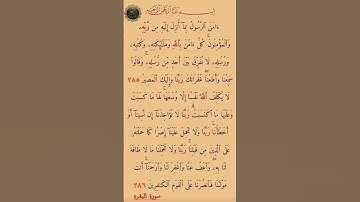 بِسْمِ اللَّهِ الرَّحْمَٰنِ الرَّحِيمِ
ءَامَنَ ٱلرَّسُولُ بِمَآ أُنزِلَ إِلَيْهِ مِن رَّبِّهِۦ
وَٱلْمُؤْمِنُونَ ۚ كُلٌّ ءَامَنَ بِٱللَّهِ وَمَلَٰٓئِكَتِهِۦ وَكُتُبِهِۦ
وَرُسُلِهِۦ لَا نُفَرِّقُ بَيْنَ أَحَدٍ مِّن رُّسُلِهِۦ ۚ وَقَالُوا۟
سَمِعْنَا وَأَطَعْنَا ۖ غُفْرَانَكَ رَبَّنَا وَإِلَيْكَ ٱلْمَصِيرُ ٢٨٥
لَا يُكَلِّفُ ٱللَّهُ نَفْسًا إِلَّا وُسْعَهَا ۚ لَهَا مَا كَسَبَتْ
وَعَلَيْهَا مَا ٱكْتَسَبَتْ ۗ رَبَّنَا لَا تُؤَاخِذْنَآ إِن نَّسِينَآ أَوْ
أَخْطَأْنَا ۚ رَبَّنَا وَلَا تَحْمِلْ عَلَيْنَآ إِصْرًا كَمَا حَمَلْتَهُۥ
عَلَى ٱلَّذِينَ مِن قَبْلِنَا ۚ رَبَّنَا وَلَا تُحَمِّلْنَا مَا لَا طَاقَةَ
لَنَا بِهِۦ ۖ وَٱعْفُ عَنَّا وَٱغْفِرْ لَنَا وَٱرْحَمْنَآ ۚ أَنتَ
مَوْلَىٰنَا فَٱنصُرْنَا عَلَى ٱلْقَوْمِ ٱلْكَٰفِرِينَ ٢٨٦
سورة البقرة